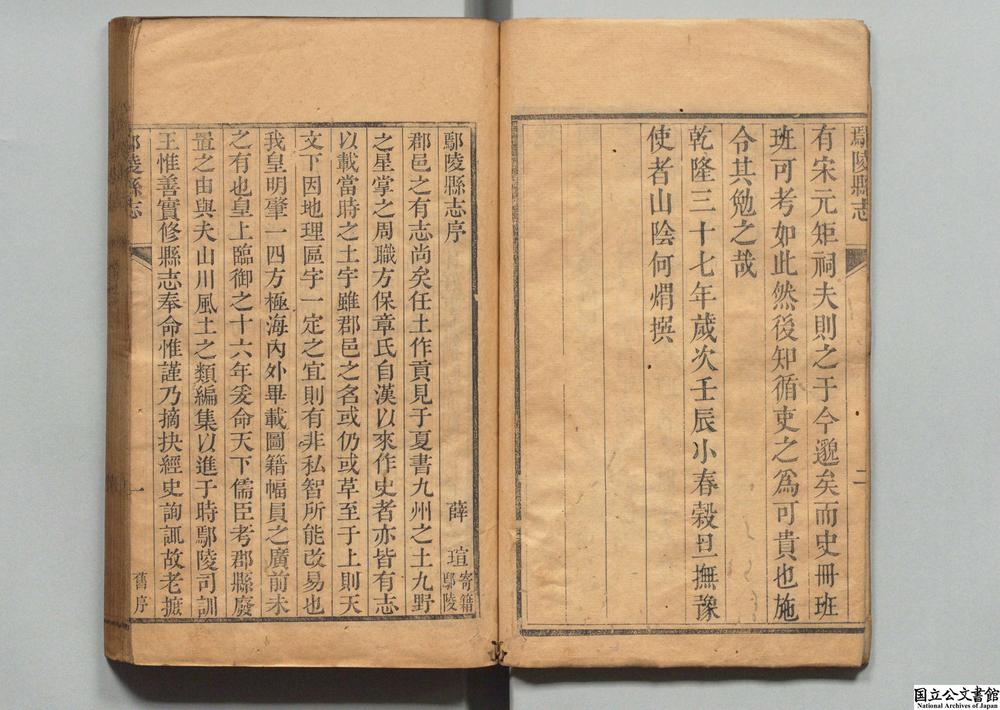 鄢陵縣志
二
有宋元矩祠夫則之于今邈矣而史冊班
班可考如此然後知循吏之爲可貴也施
令其勉之哉
乾隆三十七年歲次壬辰小春穀旦撫豫
使者山陰何煟撰
鄢陵縣志序
薛瑄寄籍鄢陵
郡邑之有志尚矣任土作貢見于夏書九州之土九野
之星掌之周職方保章氏自漢以來作史者亦皆有志
以載當時之土宇雖郡邑之名或仍或草至于上則天
文下因地理區宇一定之宜則有非私智所能改易也
我皇明肇一四方極海內外畢載圖籍幅員之廣前未
之有也皇上臨御之十六年爰命天下儒臣考郡縣廢
置之由與夫山川風土之類編集以進于時鄢陵司訓
王惟善實修縣志奉命惟謹乃摘抉經史詢諏故老摭
鄢陵縣志
一
舊序
国立公文書館
National Archives of Japan